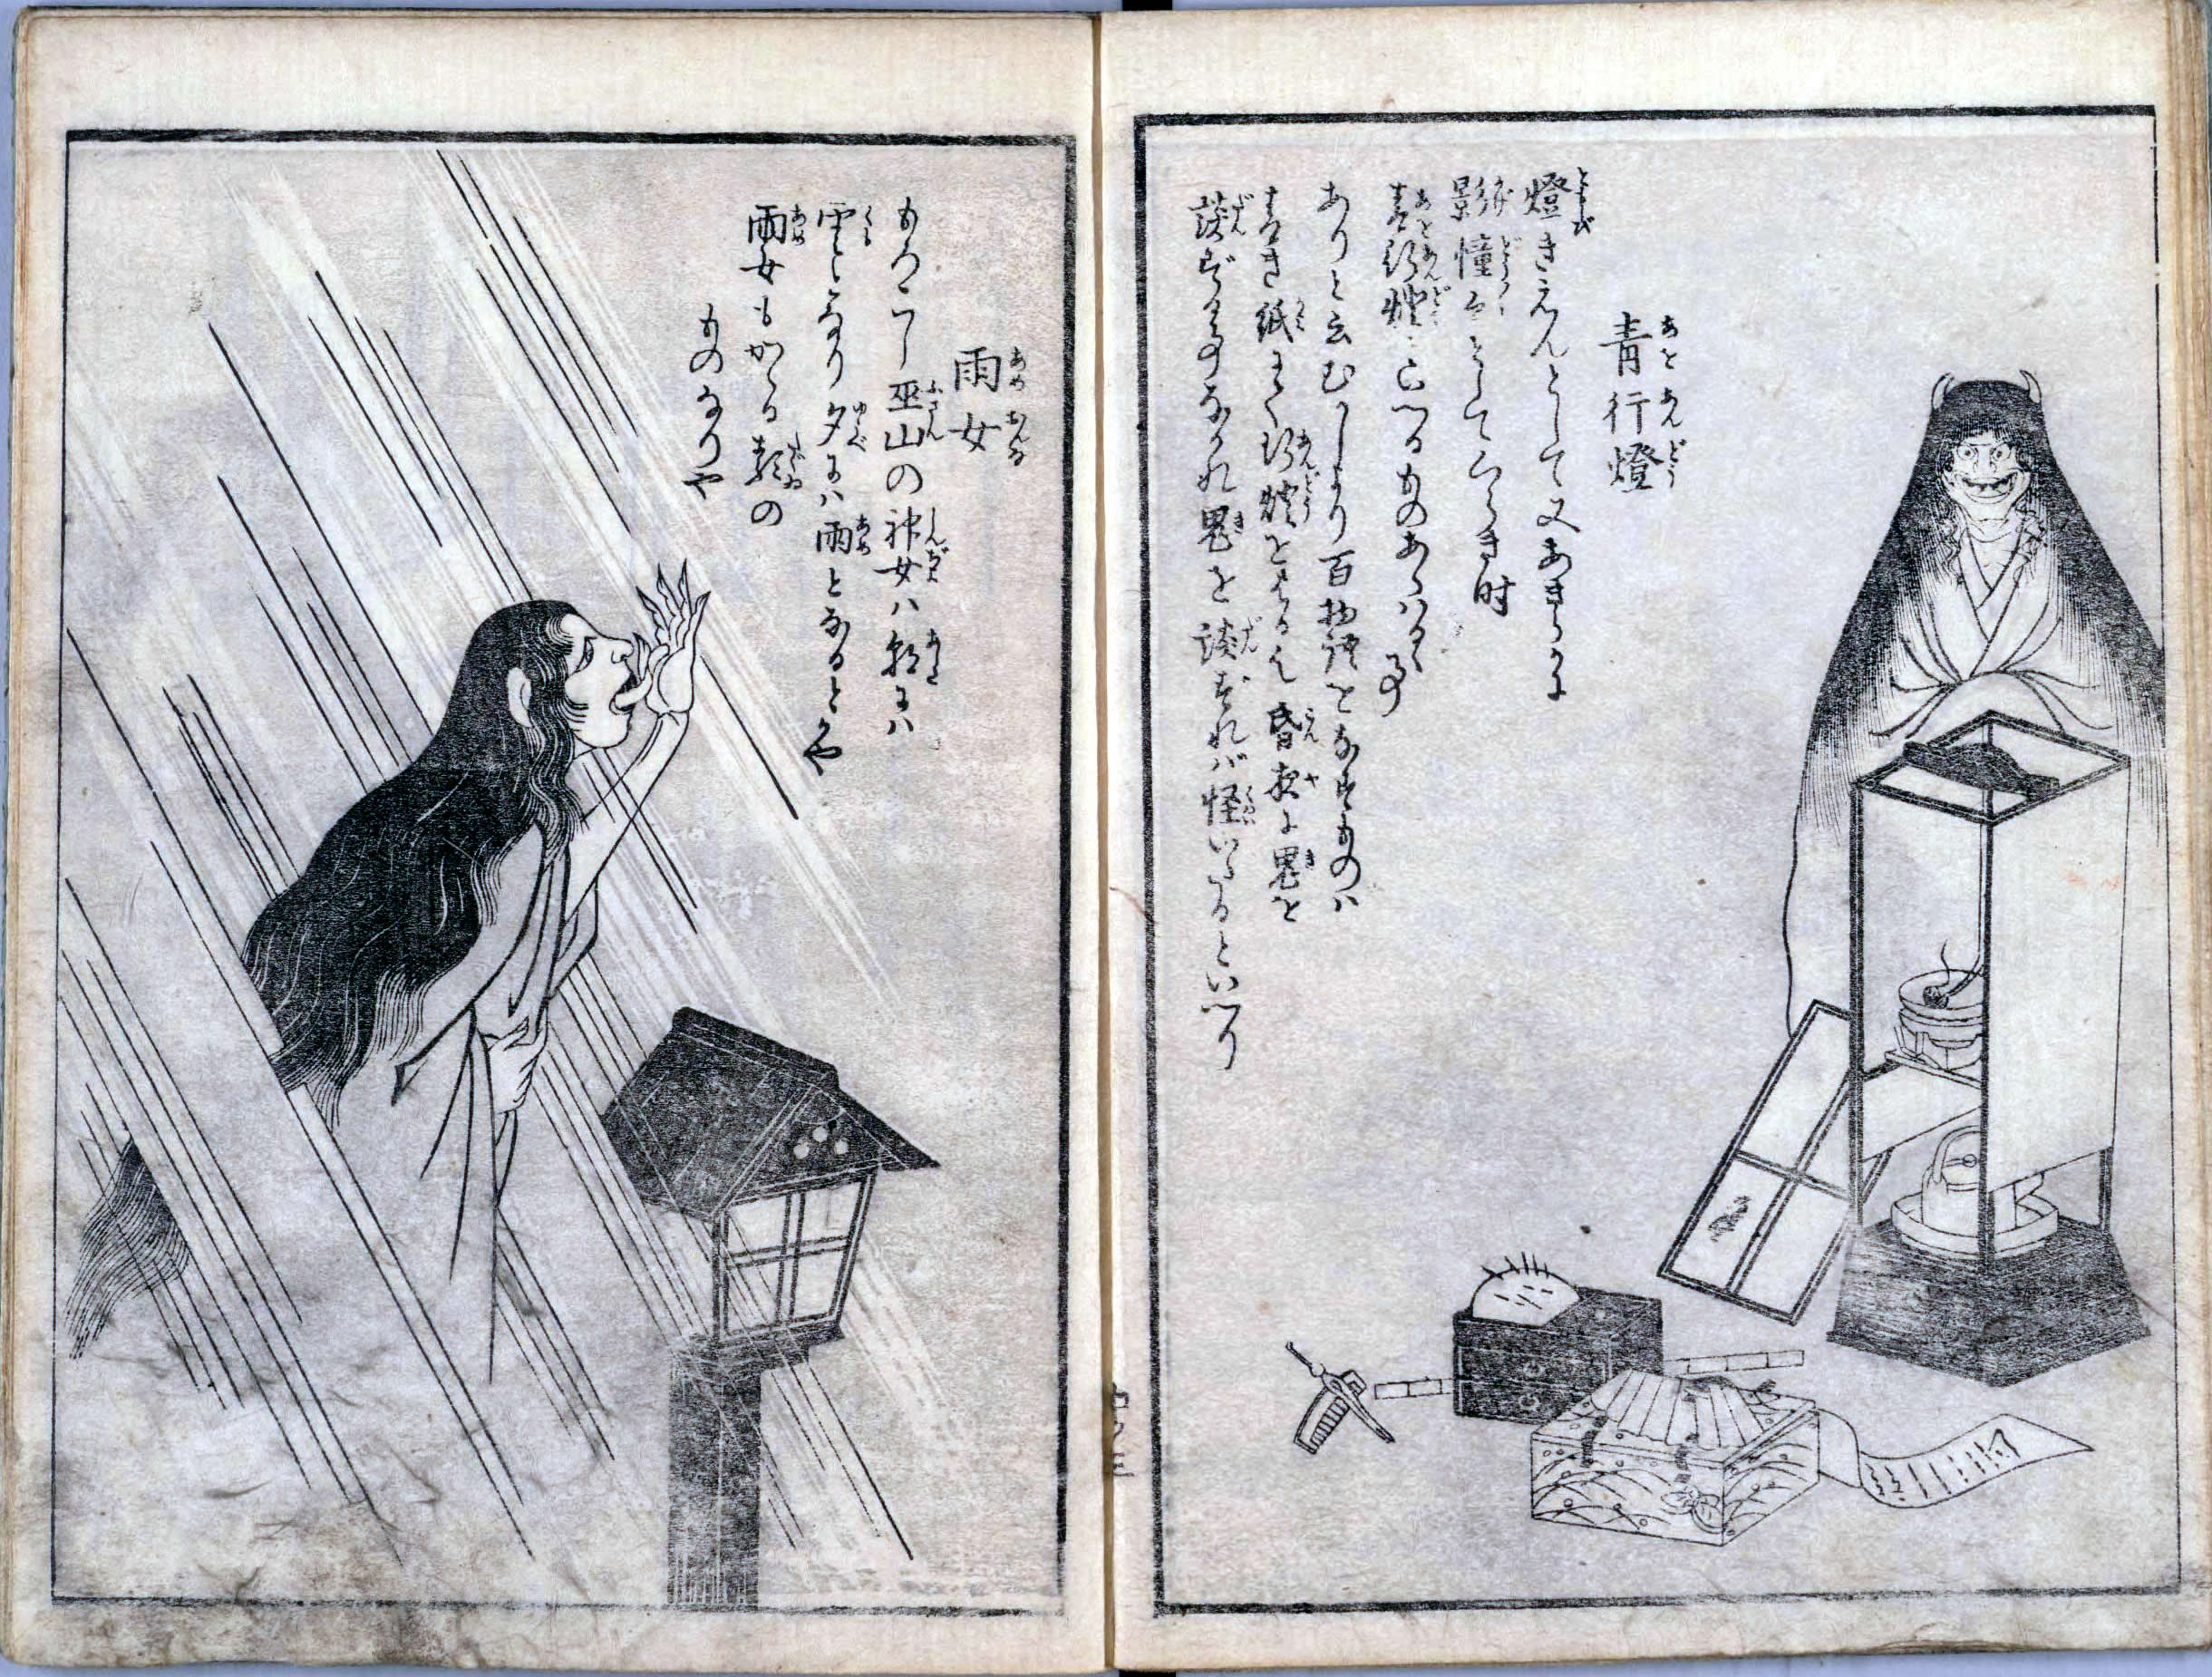 青行燈
あをあんどう
燈きえんとして又あきらかに
影憧〻としてくらき時
青行燈といへるものあらはるゝ事
ありと云むかしより百物語をなすものハ
青き紙にて行燈をはる也昏夜に鬼を
談ずる事なかれ鬼を談ずれバ怪いたるといへり
雨女
あめおんな
もろこし巫山の神女ハ朝にハ
雲となり夕にハ雨となるとかや
雨女もかゝる類の
ものなりや